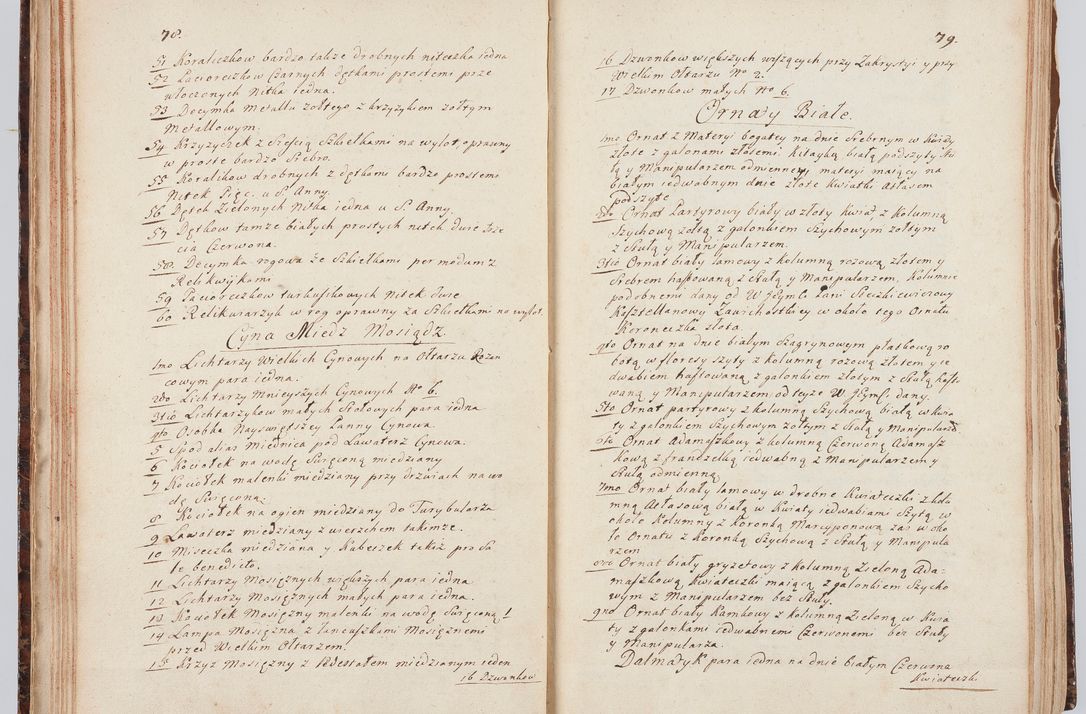 78.
51 Koraliczkow bardzo także drobnych niteczka iedna
52 Pacioreczkow Czarnych dętkami prostemi prze
włoczonych Nitka iedna.
53 Decymka Metallu żołtego z krzyżykiem żołtym
Metallowym.
54 Krzyżyczek z Sześcią Szkiełkami na wylot, oprawny
w proste bardzo Srebro.
55 Koralikow drobnych z dętkami bardzo prostemi
Nitek Pięć. u S. Anny.
56 Dętek Zielonych Nitka iedna u S. Anny.
57 Dętkow tamże białych prostych nitek dwie Trze
cia Czerwona.
58. Decymka rogowa ze Szkiełkami per modum z
Relikwijkami
59 Pacioreczkow turkusikowych Nitek dwie
60 Relikwiarzyk w rog oprawny za Szkiełkami na wylot.
Cyna Miedz Mosiądz.
1mo Lichtarzy Wielkich Cynowych na Ołtarzu Rożan
cowym para iedna.
2do Lichtarzy Mnieyszych Cynowych No 6.
3tio Lichtarzykow małych Stołowych para iedna
4to Osobka Nayświętszey Panny Cynowa.
5 Spod alias Miednica pod Lawaterz Cynowa.
6 Kociołek na wodę Swięconą miedziany
7 Kociołek malenki miedziany przy drzwiach na wo
dę Swięconą.
8 Kociołek na ogien miedziany do Turybularza
9 Lawaterz miedziany z wierzchem takimże.
10 Miseczka miedziana y Kubeczek tekiż pro Sa
le benedicto.
11 Lichtarzy Mosiężnych większych para iedna
12 Lichtarzy Mosiężnych małych para iedna.
13 Kociołek Mosiężny malenki na wodę Swięconą 1
14 Lampa Mosiężna z łancuszkami Mosiężnemi
przed Wielkim Ołtarzem.
15 Krzyż Mosiężny z Pedestałem miedzianym ieden
16 Dzwonkow
79.
16 Dzwonkow większych wiszących przy Zakrystyi y przy
Wielkim Ołtarzu No 2.
17 Dzwonkow małych No 6.
Ornaty Białe.
1mo Ornat z Materyi bogatey na dnie Srebrnym w Kwiaty
złote z galonami złotemi. Kitayką białą podszyty Stu
łą y Manipularzem odmienney materyi maiący na
białym iedwabnym dnie złote kwiatki Atłasem
podszyte
2do Ornat Partyrowy biały w złoty Kwiat, z Kolumną
Szychową żołtą z galonkiem Szychowym żołtym
z Stułą y Manipularzem.
3tio Ornat biały lamowy z kolumną rożową złotem y
Srebrem haftowaną z Stułą y Manipularzem, Kolumnie
podobnemi dany od W JPani
Kasztellanowy w około tego Ornatu
Koroneczka złota.
4to Ornat na dnie białym Szagrynowym płatkową ro
botą w floresy szyty z kolumną rożową złotem y ie
dwabiem haftowaną z galonkiem złotym z Stułą haft
waną y Manipularzem, od teyże W dany.
5to Ornat partyrowy z kolumną Szychową białą w kwia
ty z galonkiem Szychowym żołtym z Stułą y Manipularzē.
6to Ornat Adamaszkowy z kolumną Czerwoną Adamasz
kową z franczelką iedwabną z Manipularzem y
Stułą odmienną
7mo Ornat biały lamowy w drobne Kwiateczki z kolu
mną Atłasową białą w Kwiaty iedwabiami Szytą w
około Kolumny z koronką Marcyponową zaś w oko
ło Ornatu z koronką Szychową z Stułą y Manipula
rzem
8vo Ornat biały gryzetowy z kolumną Zieloną Ada-
maszkową, kwiateczki maiącą z galonkiem Szycho
wym z Manipularzem bez Stuły.
9no Ornat biały Kamkowy z Kolumną Zieloną w Kwia
ty z galonkami iedwabnemi Czerwonemi bez Stuły
y Manipularza.
Dalmatyk para iedna na dnie białym Czerwone
Kwiateczki